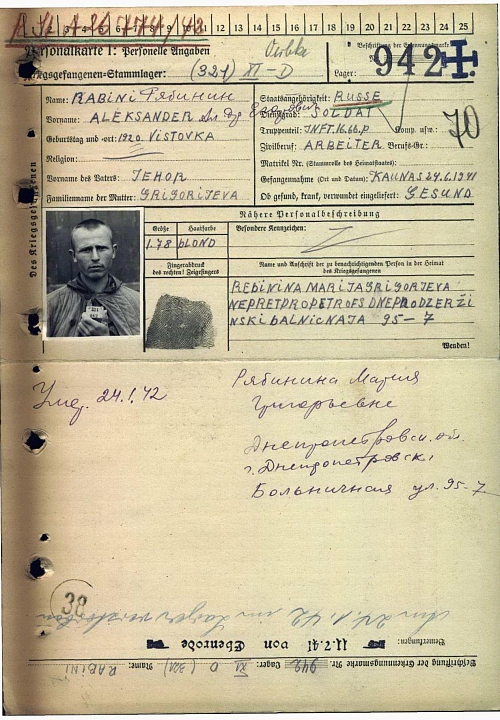 11 12 13 14 15 16 17 18 19 20 21 22 23 24 25
Personalkarte I: Personelle Angaben
Kriegsgefangenen-Stammlager: (321) XI-D
Beschriftung der Erkennungsmarke
Nr. 942
Lager:
Des Kriegsgefangenen
Name: RABINI Рябинин
Vorname: ALEKSANDER
Geburtstag und -ort: 1920. VISTOVKA
Religion:
Vorname des Vaters: JEHOR
Familienname der Mutter: GRIGORIJEVA
Staatsangehörigkeit: RUSSE
Dienstgrad: SOLDAT
Truppenteil: INFT.16.66.P Komp. usw.:
70
Zivilberuf: ARBEITER Berufs-Gr.:
Matrikel Nr. (Stammrolle des Heimatstaates):
Gefangennahme (Ort und Datum): KAUNAS 24.6.1941
Ob gesund, krank, verwundet eingeliefert: GESUND
Nähere Personalbeschreibung
Größe Haarfarbe Besondere Kennzeichen:
1.78 BLOND
Fingerabdruck
des rechten! Zeigefingers
Name und Anschrift der zu benachrichtigenden Person in der Heimat
des Kriegsgefangenen
REBININA MARIJA GRIGORJEVA
NEPRETPROPETROFS DNEPRODZERŽI
NSKI BALNICNAJA 95-7
Wenden!
Умер. 24.1.42
Рябинина Мария
Григорьевне
Днепропетровск. обл.
г. Днепропетровск.
Больничная ул. 95-7
38
Am 24.1.42 im Lager verstorben
Bemerkungen: 11.7.41 von Ebenrode
Beschriftung der Erkennungsmarke Nr. 942 Lager: XI D (321) Name: RABINI